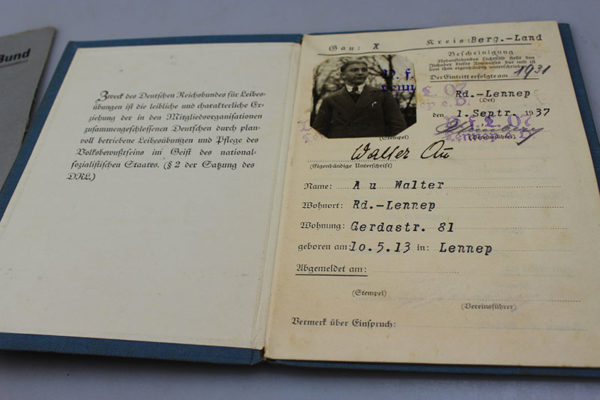 Bund
Zweck des Deutschen Reichsbundes für Leibes-
übungen ist die leibliche und charakterliche Er-
ziehung der in den Mitgliedsorganisationen
zusammengeschlossenen Deutschen durch plan-
voll betriebene Leibesübungen und Pflege des
Volksbewußtseins im Geist des national-
sozialistischen Staates. (§ 2 der Satzung des
DRL.)
Gau: X Kreis: Berg.-Land
Bescheinigung
Der Eintritt erfolgte am 1931
Rd.-Lennep
(Ort)
den 1. Septr. 1937
(Stempel) (Vereinsführer)
Walter Au
(Eigenhändige Unterschrift)
Name: A u Walter
Wohnort: Rd.-Lennep
Wohnung: Gerdastr. 81
geboren am 10.5.13 in: Lennep
Abgemeldet am:
(Stempel) (Vereinsführer)
Vermerk über Einspruch: